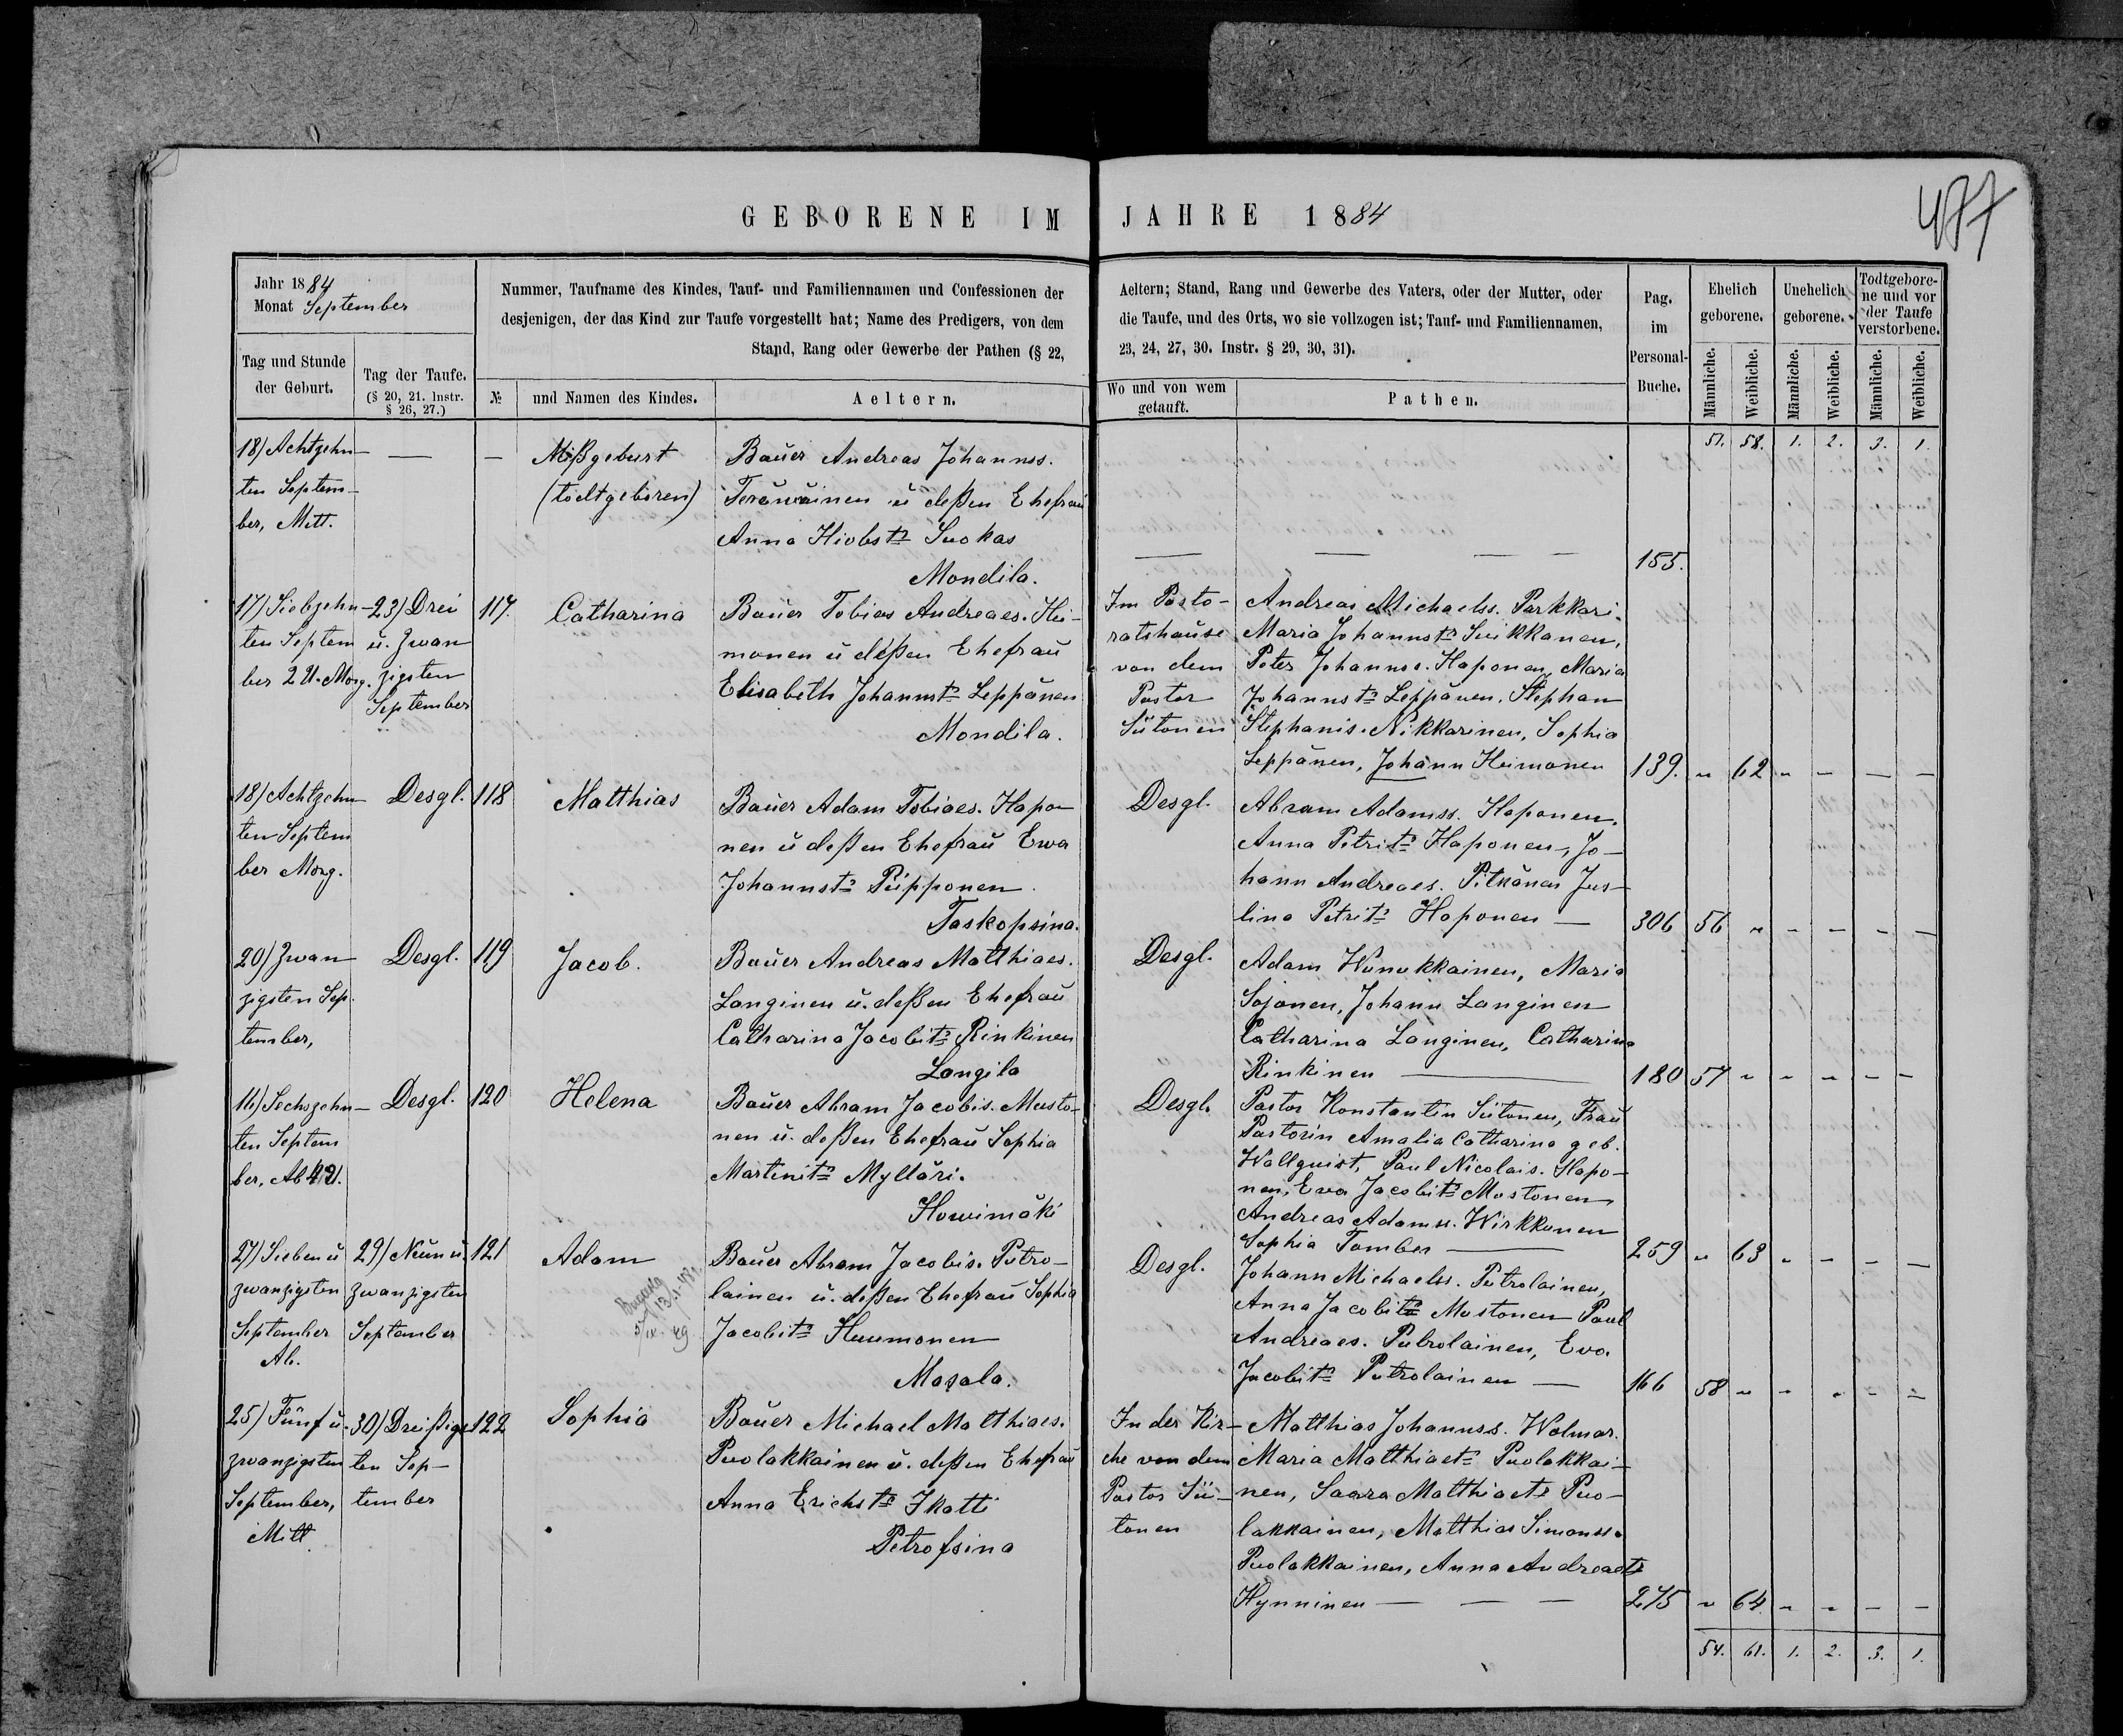 GEBORENE IM JAHRE 1884
477
Jahr 1884
Monat September
Nummer, Taufname des Kindes, Tauf- und Familiennamen und Confessionen der
desjenigen, der das Kind zur Taufe vorgestellt hat; Name des Predigers, von dem
Stand, Rang oder Gewerbe der Pathen (§ 22,
Aeltern; Stand, Rang und Gewerbe des Vaters, oder der Mutter, oder
die Taufe, und des Orts, wo sie vollzogen ist; Tauf- und Familiennamen,
23, 24, 27, 30. Instr. § 29, 30, 31).
Pag.
im
Personal-
Buche.
Ehelich
geborene.
Unehelich
geborene.
Todtgebore-
ne und vor
der Taufe
verstorbene.
Tag und Stunde
der Geburt.
Tag der Taufe.
(§ 20, 21. Instr.
§ 26, 27.)
№
und Namen des Kindes.
Aeltern.
Wo und von wem
getauft.
Pathen.
Männliche.
Weibliche.
Männliche.
Weibliche.
Männliche.
Weibliche.
51. 58. 1. 2. 3. 1.
18) Achtzehn-
ten Septem-
ber, Mitt.
—
—
Mißgeburt
(todtgeboren)
Bauer Andreas Johannss.
u deßen Ehefrau
Anna Hiobstr Suokas
Mondila.
— — — —
185.
17) Siebzehn-
ten Septem
ber 2 U. Morg.
23) Drei
u. zwan
zigsten
September
117.
Catharina
Bauer Tobias Andreaes. Hei-
monen u deßen Ehefrau
Elisabeth Johannstr Leppänen
Mondila.
Im Pasto-
ratshause
von dem
Pastor
Siitonen
Andreas Michaelss. Parkkari.
Maria Johannstr Suikkanen,
Peter Johannss. Haponen, Maria
Johannstr Leppänen, Stephan
Stephanis. Nikkarinen, Sophia
Leppänen, Johann Heimonen
139. " 62 " — — —
18) Achtzehn
ten Septem
ber Morg.
Desgl.
118
Matthias
Bauer Adam Tobiaes. Hapo-
nen u deßen Ehefrau Ewa
Johannstr Piipponen
Taskopsina.
Desgl.
Abram Adamss. Haponen.
Anna Petritr Haponen, Jo-
hann Andreaes. Pitkänen
lina Petritr Haponen —
306 56 " — — — —
20) Zwan
zigsten Sep.
tember,
Desgl.
119
Jacob.
Bauer Andreas Matthiaes.
Langinen u. deßen Ehefrau
Catharina Jacobitr Rinkinen
Langila
Desgl.
Adam Wanukkainen, Maria
Sojonen, Johann Langinen
Catharina Langinen, Catharina
Rinkinen —
180 57 " — — — —
16) Sechszehn-
ten Septem
ber, Ab
Desgl.
120
Helena
Bauer Abram Jacobis. Musto-
nen u. deßen Ehefrau Sophia
Martinitr Mylläri.
Howimäki
Desgl.
Pastor Konstantin Siitonen, Frau
Pastorin Amalia Catharina geb.
Wallquist, Paul Nicolais. Hapo-
nen, Eva Jacobitr Mustonen,
Andreas Adamss. Wirkkunen
Sophia Tamber —
259 " 63 " — — —
27) Sieben u
zwanzigsten
September
Ab.
29) Neun u.
zwanzigsten
September
121
Adam
Bauer Abram Jacobis. Putro-
lainen u. deßen Ehefrau Sophia
Jacobitr Huumonen
Masala.
Desgl.
Johann Michaelss. Putrolainen,
Anna Jacobitr Mustonen Paul
Andreaes. Putrolainen, Eva
Jacobitr Putrolainen —
166 58 " — — — —
25) Fünf u.
zwanzigsten
September,
Mitt.
30) Dreißigs
ten Sep-
tember
122
Sophia
Bauer Michael Matthiaes.
Puolakkainen u. deßen Ehefrau
Anna Erichstr Ikatti
Petrofsina
In der Kir-
che von dem
Pastor Sii-
tonen
Matthias Johannss. Wolmar.
Maria Matthiaetr Puolakkai-
nen, Saara Matthiaetr Puo-
lakkainen, Matthias Simonss.
Puolakkainen, Anna Andreaetr
Hynninen — — —
275 " 64 " — — —
54. 61. 1. 2. 3. 1.